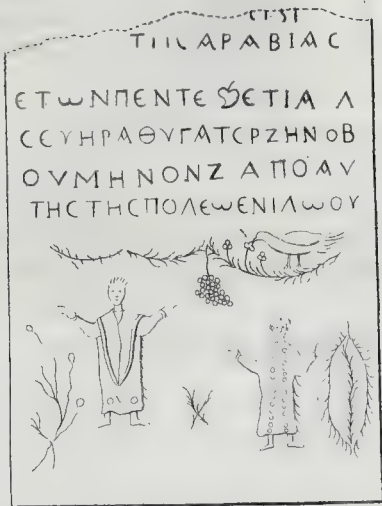 ΤΙΙϹ ΑΡΑΒΙΑϹ
ΕΤωΝΠΕΝΤΕ ❦ ΕΤΙΑ Λ
ϹΕΥΗΡΑΘΥΓΑΤϹΡΖΗΝΟΒ
ΟΥΜΗΝΟΝΖ ΑΠΟΑΥ
ΤΗϹΤΗϹΠΟΛΕωΕΝΙΛωΟΥ